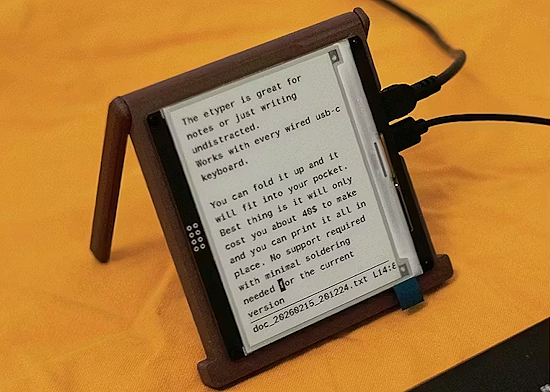 The etyper is great for
notes or just writing
undistracted.
Works with every wired usb-c
keyboard.
You can fold it up and it
will fit into your pocket.
Best thing is it will only
cost you about 40$ to make
and you can print it all in
place. No support required
with minimal soldering
needed for the current
version
doc_20260215_201224.txt L14:8